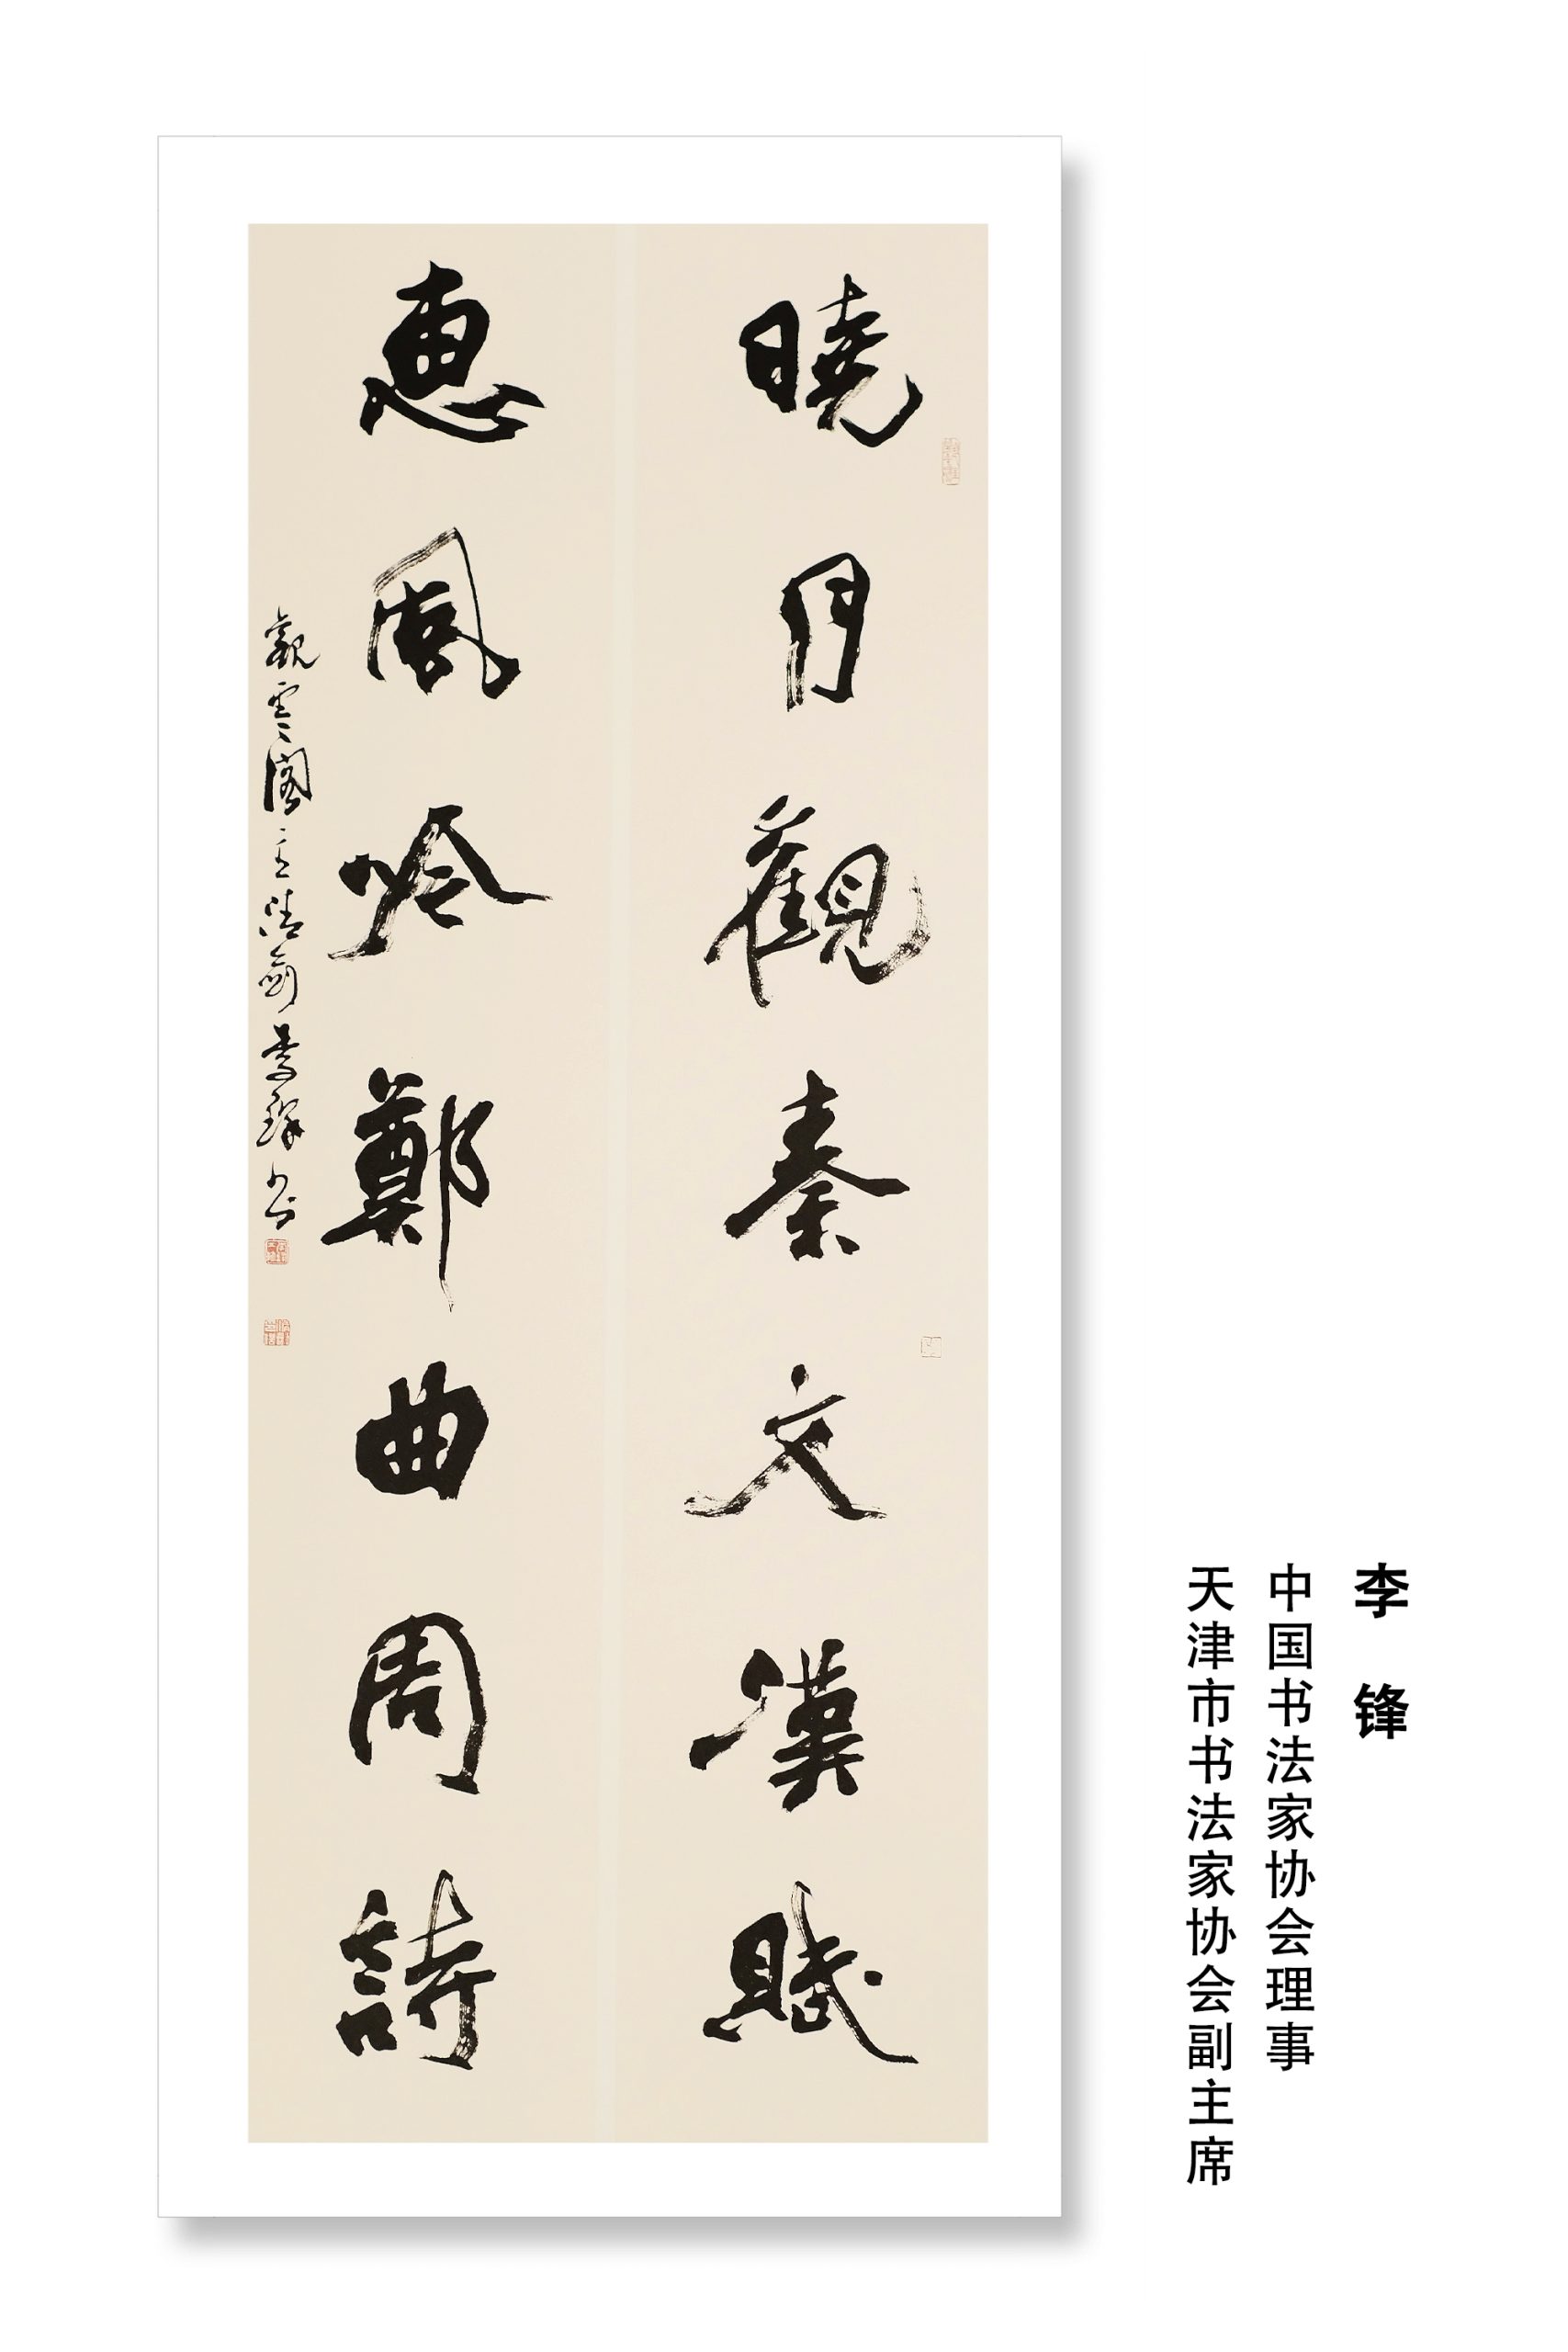 曉月觀秦文漢賦
惠風吟鄭曲周詩
觀雲閣主 書
李锋
中国书法家协会理事
天津市书法家协会副主席